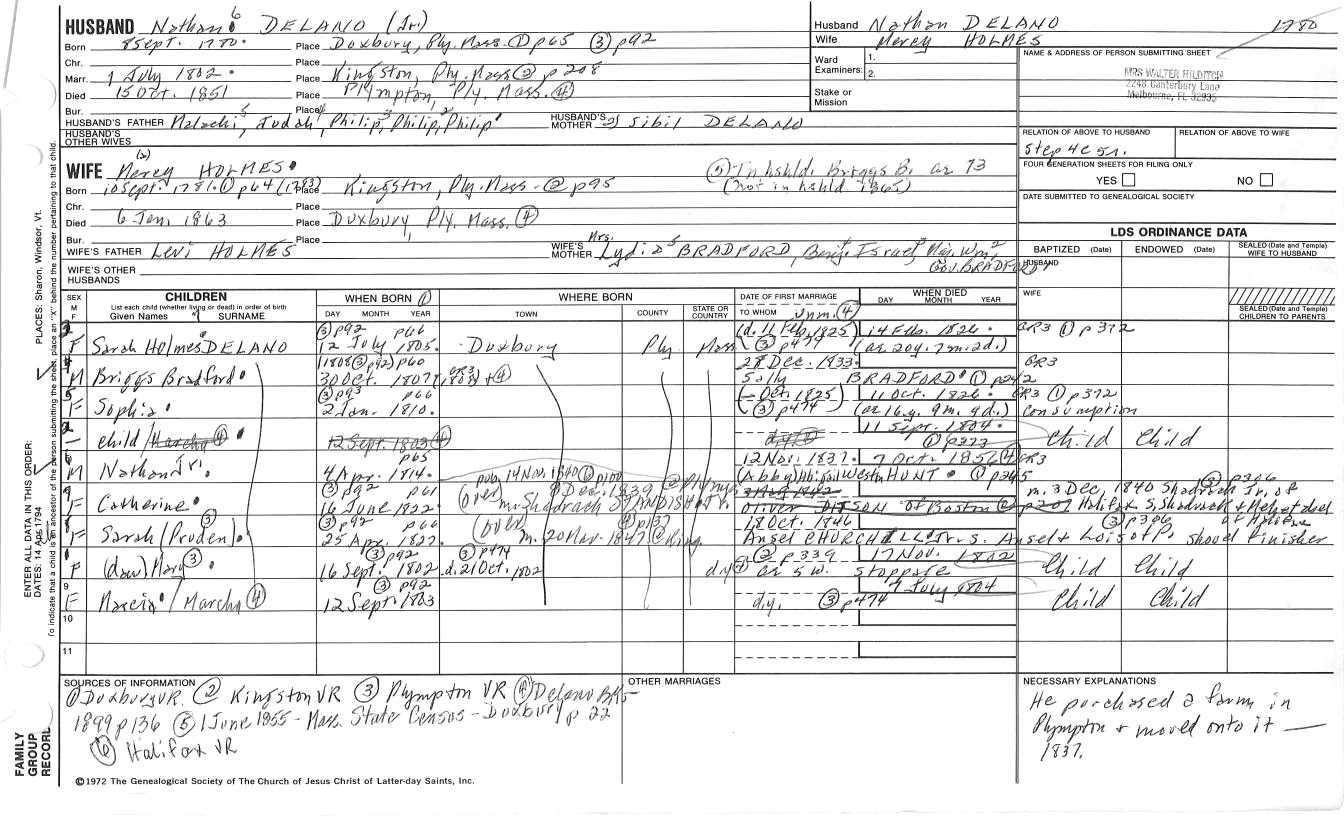 HUSBAND Nathan 6 DELANO (Jr.)
Born 8 Sept. 1780. Place Duxbury, Ply. Mass. ① p65 ③ p92
Chr. Place
Marr. 1 July 1802. Place Kingston, Ply. Mass ② p 208
Died 15 Oct. 1851 Place Plympton, Ply. Mass. ④
Bur. Place
HUSBAND'S FATHER Malachi, 5 Judah, 4 Philip, 3 Philip, 2 Philip 1 HUSBAND'S MOTHER 2) Sibil DELANO
HUSBAND'S OTHER WIVES
Husband Nathan DELANO 1780
Wife Mercy HOLMES
Ward Examiners: 1.
2.
Stake or Mission
NAME & ADDRESS OF PERSON SUBMITTING SHEET
MRS WALTER HILDITCH
2248 Canterbury Lane
Melbourne, FL 32935
RELATION OF ABOVE TO HUSBAND RELATION OF ABOVE TO WIFE
Step 4C5r.
FOUR GENERATION SHEETS FOR FILING ONLY
YES NO
DATE SUBMITTED TO GENEALOGICAL SOCIETY
(2)
WIFE Mercy HOLMES.
Born 10 Sept. 1781. ① p64 (1783) Place Kingston, Ply. Mass - ② p95
⑤ In hshld. Briggs B. ae 73
(not in hshld 1865)
Chr. Place
Died 6 Jan. 1863 Place Duxbury, Ply. Mass. ④
Bur. Place
WIFE'S FATHER Levi HOLMES WIFE'S MOTHER Mrs. Lydia 5 BRADFORD, Benj. 4 Israel 3 Maj. Wm. 2
Gov. BRADFORD 1
WIFE'S OTHER HUSBANDS
LDS ORDINANCE DATA
BAPTIZED (Date) ENDOWED (Date) SEALED (Date and Temple) WIFE TO HUSBAND
HUSBAND
WIFE
SEALED (Date and Temple) CHILDREN TO PARENTS
SEX M F
CHILDREN
List each child (whether living or dead) in order of birth
Given Names 7 SURNAME
WHEN BORN ①
DAY MONTH YEAR
WHERE BORN
TOWN COUNTY STATE OR COUNTRY
DATE OF FIRST MARRIAGE
TO WHOM unm. ④
WHEN DIED
DAY MONTH YEAR
3 ③ p92 p66 (d. 11 Feb. 1825) 14 Feb. 1826. GR3 ① p372
F Sarah Holmes DELANO 12 July 1805. Duxbury Ply Mass (③ p474 (ae 20y. 7m. 2d.)
4 1808 ③ p92) p60 28 Dec. 1833. GR3
M Briggs Bradford. 30 Oct. 1807 (GR3 1808) + ④ Sally BRADFORD. ① p242
5 ③ p93 p66 (- Oct. 1825) 11 Oct. 1826. GR3 ① p372
F Sophia. 2 Jan. 1810. (③ p474 (ae 16y. 9m. 9d.) Consumption
2 11 Sept. 1804.
— child / Marcha ④ . 12 Sept. 1803 ④ d.y. ④ ① p373 Child Child
6 p65 12 Nov. 1837. 7 Oct. 1856 ④ GR3
M Nathan Jr. 4 Apr. 1814. (Abby) Abigail Weston HUNT. ① p265
pub. 14 Nov. 1840 ⑥ p100
③ p92 p61 (over) 8 Dec. 1839 ② Plymp. 3 May 1842 m. 3 Dec. 1840 Shadrach Jr. of ③ p306
F Catherine. 16 June 1822. m. Shadrach STANDISH Jr. Oliver DITSON of Boston ② p207 Halifax S. Shadrach +
8 ③ p92 p66 (over) ④ p137 18 Oct. 1846 ③ p306 of Halifax
F Sarah (Pruden) ③ . 25 Apr. 1827. m. 20 Nov. 1847 @ King. Ansel CHURCHILL Jr. S. Ansel + Lois of P. shovel finisher
1 ③ p92 ③ p474 ② p 339 17 Nov. 1802
F (dau) Mary ③ . 16 Sept. 1802 d. 21 Oct. 1802 d.y ④ ae 5 w. stoppage Child Child
9 ③ p92 7 July 1804
F Marcia / Marcha ④ 12 Sept. 1803 d.y. ③ p474 Child Child
10
11
SOURCES OF INFORMATION
① Duxbury VR. ② Kingston VR ③ Plympton VR ④ Delano
1899 p136 ⑤ 1 June 1855 - Mass. State Census - Duxbury p 22
⑥ Halifax VR
OTHER MARRIAGES
NECESSARY EXPLANATIONS
He purchased a farm in
Plympton + moved onto it —
1837.
©1972 The Genealogical Society of The Church of Jesus Christ of Latter-day Saints, Inc.
FAMILY GROUP RECORD
ENTER ALL DATA IN THIS ORDER:
DATES: 14 Apr. 1794
PLACES: Sharon, Windsor, Vt.
To indicate that a child is an ancestor of the person submitting the sheet, place an "X" behind the number pertaining to that child.